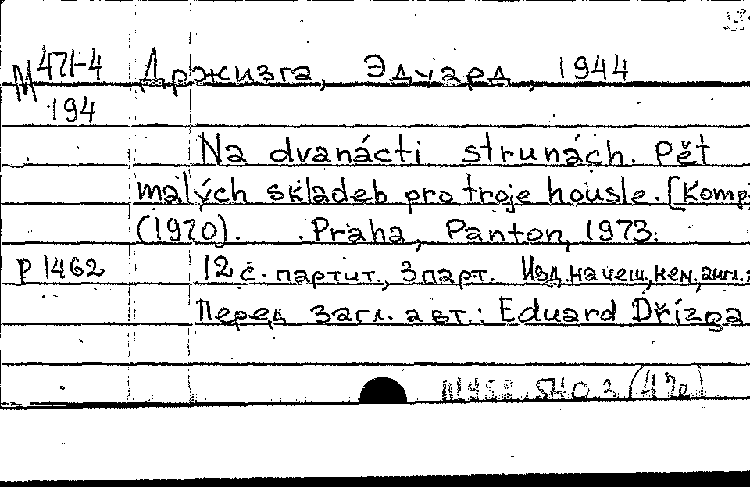 М 471-4 Држизга, Эдуард, 1944
194
Na dvanácti strunách. Pět
malých skladeb pro troje housle. [Komp
(1970). Praha, Panton, 1973.
P 1462 12 с. партит., 3 парт. Изд. на чеш., нем., англ.
Перед загл. авт.: Eduard Dřízga